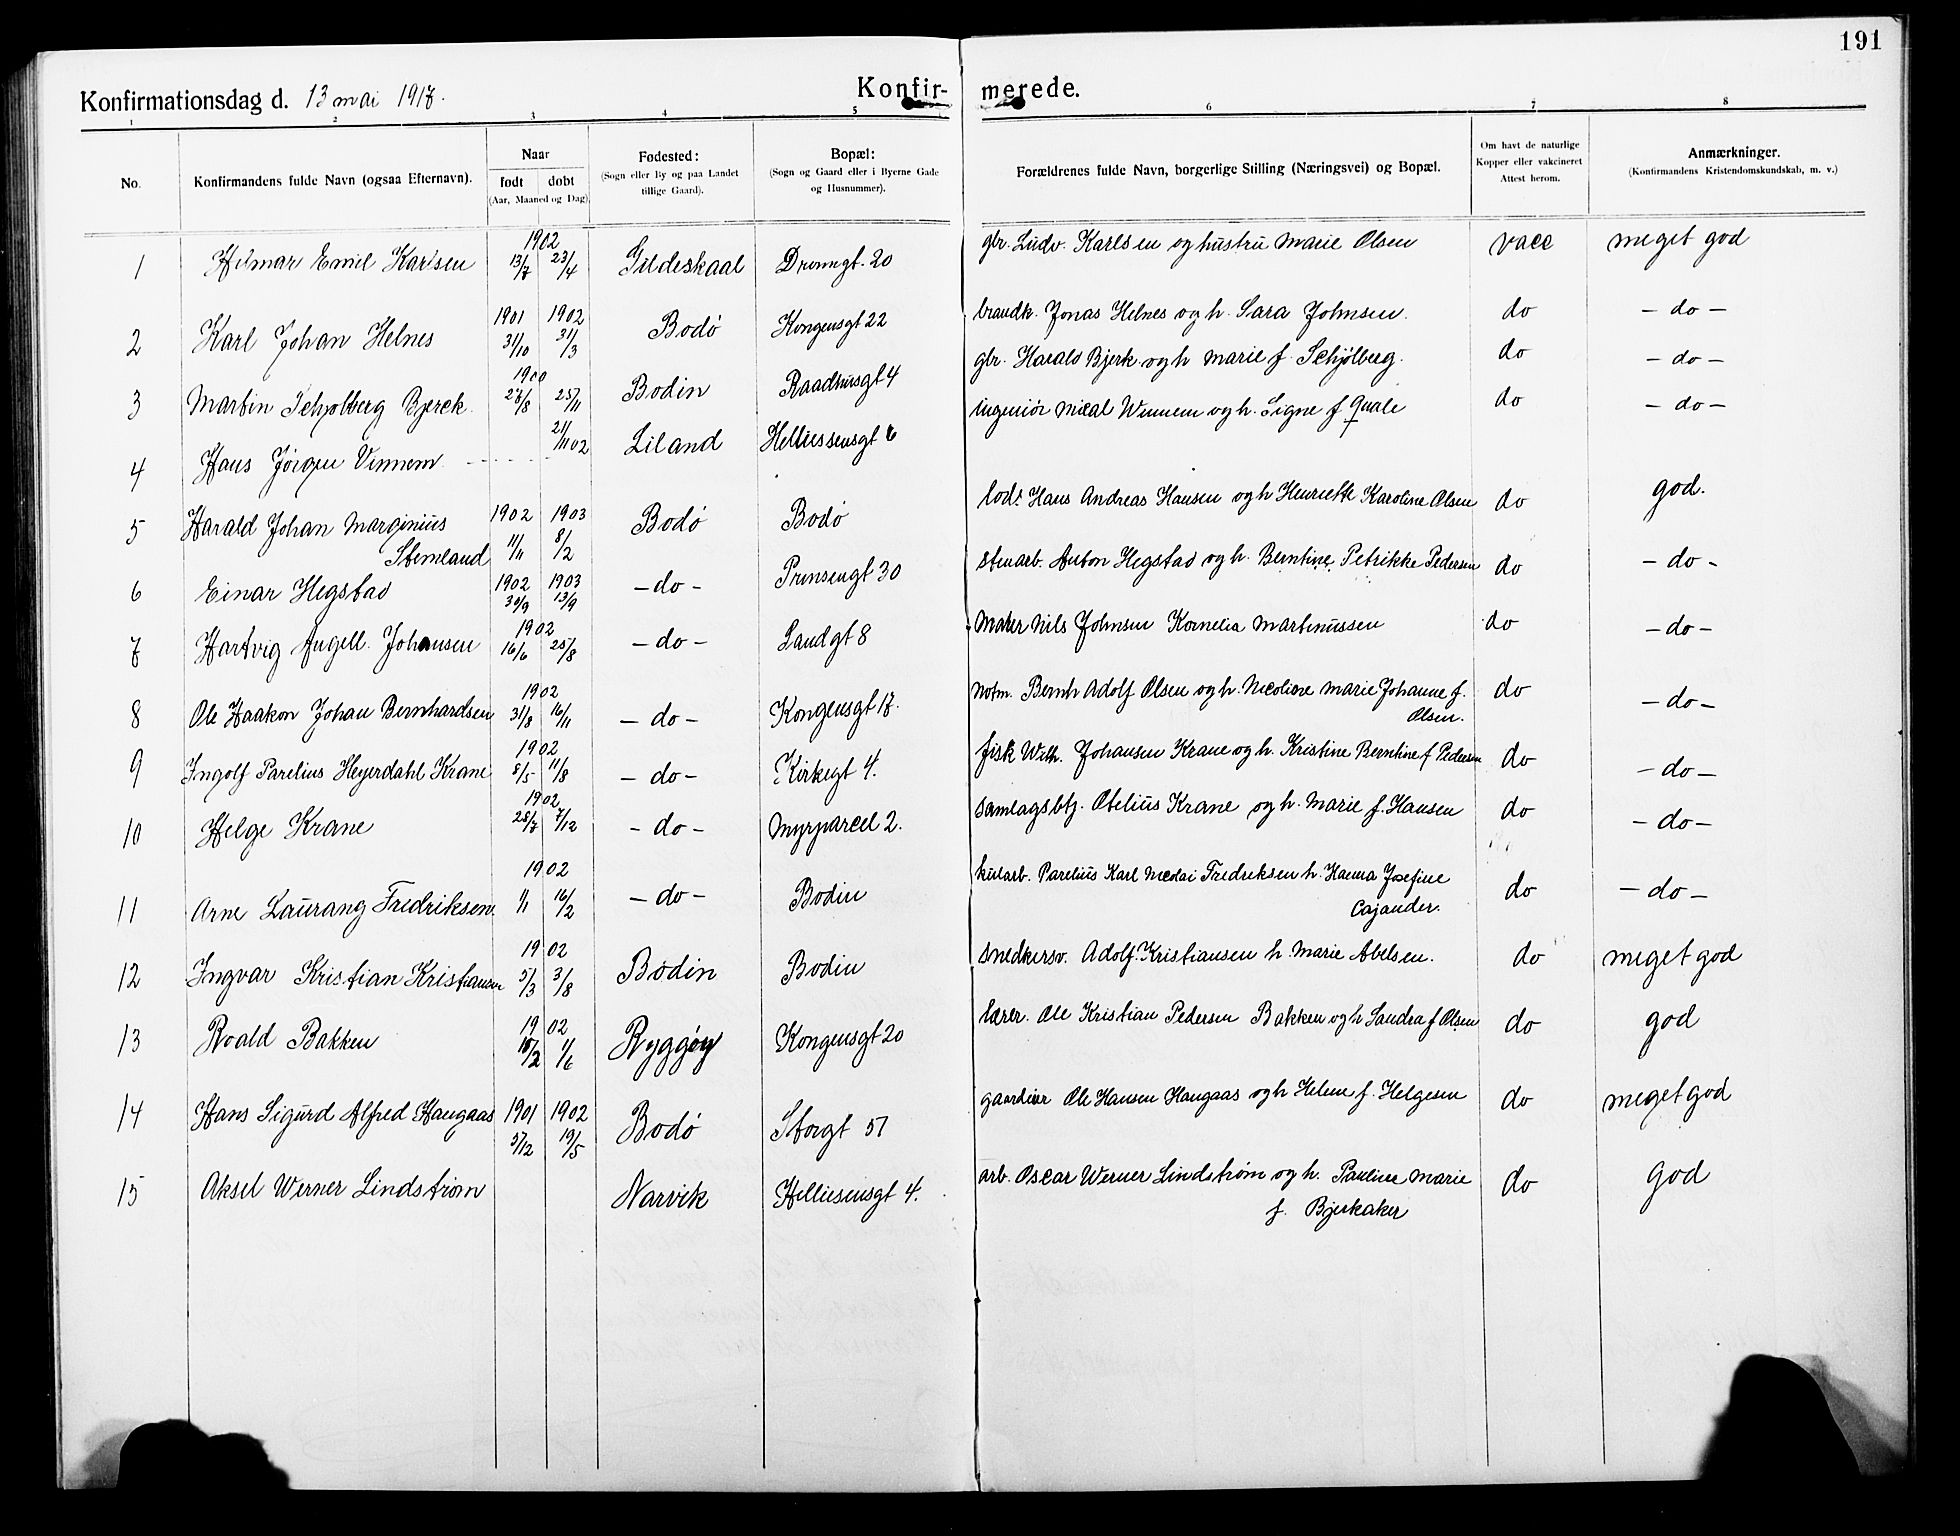 191
Konfirmationsdag d. 13 mai 1917.
Konfir- merede.
1 2 3 4 5 6 7 8
No.
Konfirmandens fulde Navn (ogsaa Efternavn).
Naar
født døbt
(Aar, Maaned og Dag).
Fødested:
(Sogn eller By og paa Landet
tillige Gaard).
Bopæl:
(Sogn og Gaard eller i Byerne Gade
og Husnummer).
Forældrenes fulde Navn, borgerlige Stilling (Næringsvei) og Bopæl.
Om havt de naturlige
Kopper eller vakcineret
Attest herom.
Anmærkninger.
(Konfirmandens Kristendomskundskab, m. v.)
1902
1 Hilmar Emil Karlsen 13/7 23/4 Gildeskaal Dronngt. 20 gbr. Ludv. Karlsen og hustru Marie Olsen vacc meget god
1901 1902
2 Karl Johan Helnes 31/10 31/3 Bodø Kongensgt 22 brandk. Jonas Helnes og h. Sara Johnsen. do - do -
1900
3 Martin Schjølberg Bjerck 28/8 25/11 Bodin Raadhusgt 4 gbr. Harald Bjerk og h Marie f. Schjølberg. do - do -
4 Hans Jørgen Vinnem 21/11 02 Liland Helliesensgt 6 ingeniør Mical Winnem og h. Signe f Quale do - do -
1902 1903
5 Harald Johan Marginius 11/11 8/2 Bodø Bodø lods Hans Andreas Hansen og h Henriette Karoline Olsen do god.
Stemland
1902 1903
6 Einar Hegstad 30/9 13/9 - do - Prinsengt 30 stenarb. Anton Hegstad og h. Berntine Petrikke Pedersen do - do -
1902
7 Hartvig Angell Johansen 16/6 25/8 - do - Sandgt 8 Maler Nils Johnsen Kornelia Martinussen do - do -
1902
8 Ole Haakon Johan Bernhardsen 31/8 16/11 - do - Kongensgt 17. notm. Bernh Adolf Olsen og h. Nicoline Marie Johanne f. do - do -
Olsen.
1902
9 Ingolf Parelius Heyerdahl Krane 8/5 11/8 - do - Kirkegt 4. fisk Wilh. Johansen Krane og h. Kristine Berntine f Pedersen do - do -
1902
10 Helge Krane 28/7 7/12 - do - Myrparcel 2. samlagsbtj. Otelius Krane og h. Marie f. Hansen do - do -
1902
11 Arne Laurang Fredriksen. 1/1 16/2 - do - Bodin kularb. Parelius Karl Nicolai Fredriksen h. Hanna Josefine do - do -
Cajander.
1902
12 Ingvar Kristian Kristiansen 5/3 3/8 Bodin Bodin snedkersv. Adolf Kristiansen h. Marie Abelsen. do meget god
1902
13 Roald Bakken 1/6 Ryggøy Kongensgt 20 lærer. Ole Kristian Pedersen Bakken og h Sandra f Olsen do god
14 Hans Sigurd Alfred Haugaas 1901 1902 Bodø Storgt 51 gaardeier Ole Hansen Haugaas og h Helene f. Helgesen do meget god
5/12 19/5
15 Aksel Werner Lindstrøm Narvik Helliesensgt 4. arb. Oscar Werner Lindstrøm og h. Pauline Marie do god
f. Bjerkaker